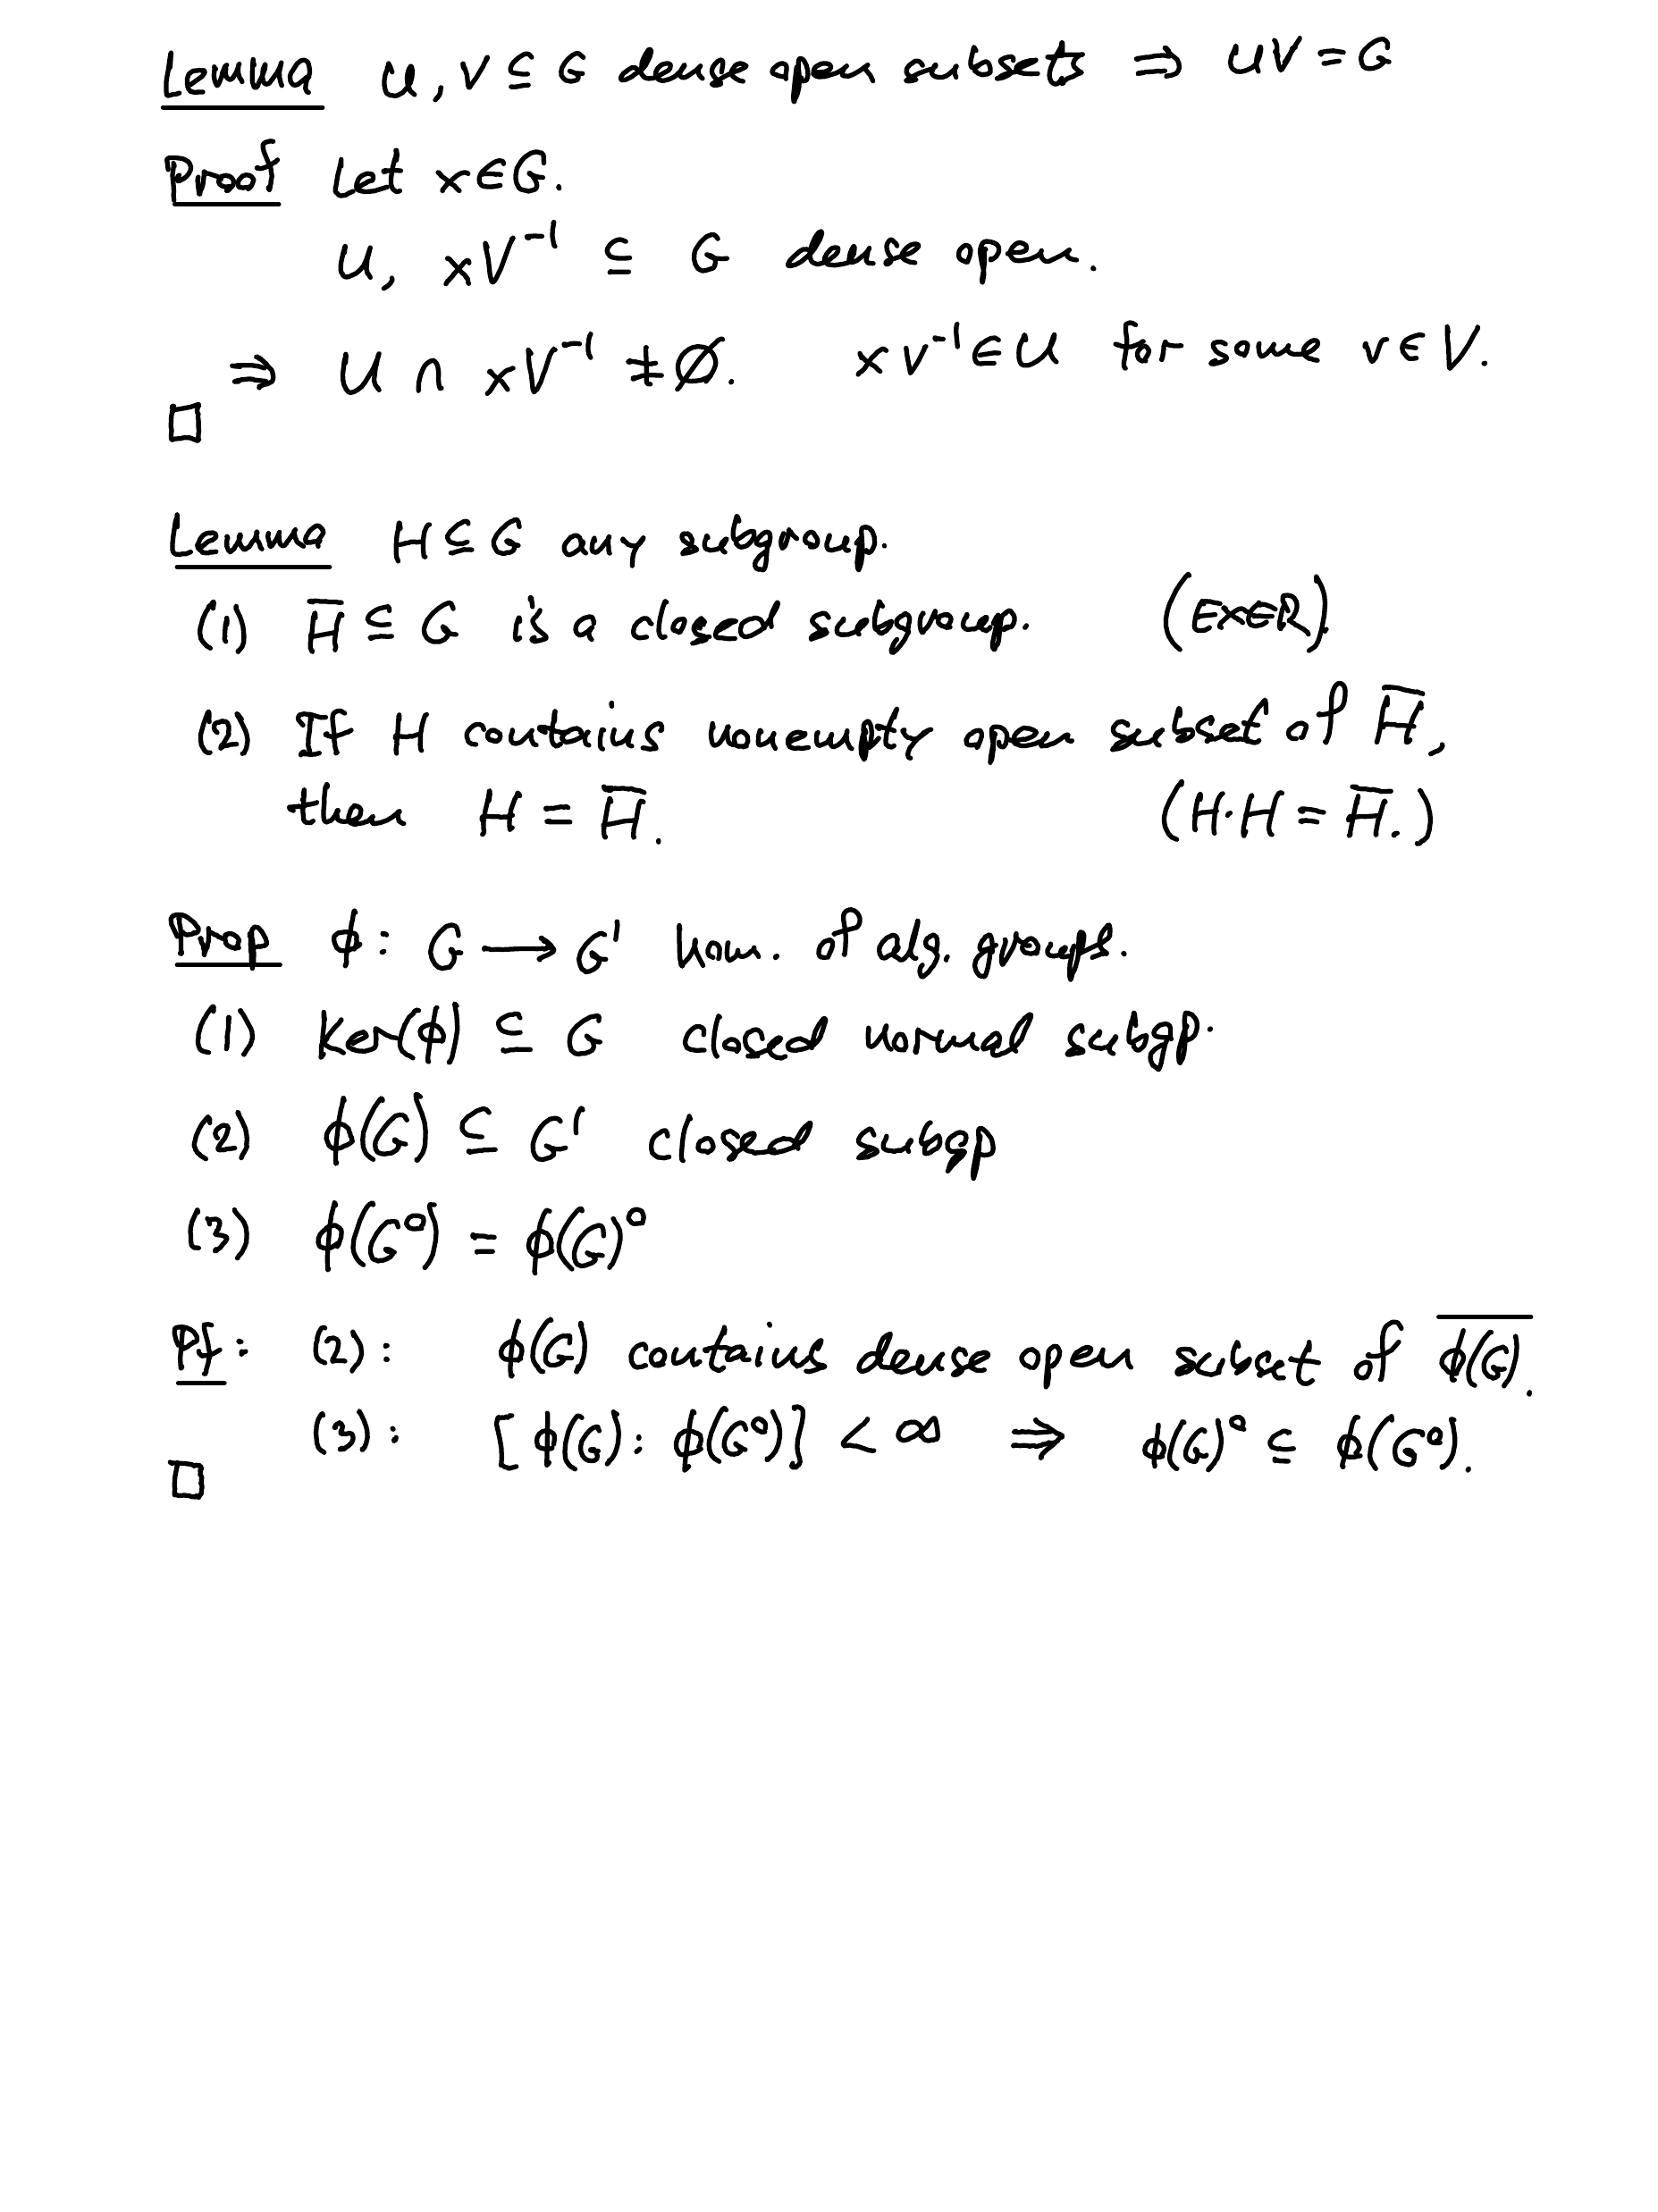 Lemma U, V ⊆ G dense open subsets ⇒ UV = G
Proof Let x ∈ G.
U, xV⁻¹ ⊆ G dense open.
⇒ U ∩ xV⁻¹ ≠ ∅. xv⁻¹ ∈ U for some v ∈ V.
□
Lemma H ⊆ G any subgroup.
(1) H̅ ⊆ G is a closed subgroup. (EXER)
(2) If H contains nonempty open subset of H̅,
then H = H̅. (H·H = H̅.)
Prop φ: G → G' hom. of alg. groups.
(1) Ker(φ) ⊆ G closed normal subgp.
(2) φ(G) ⊆ G' closed subgp
(3) φ(G°) = φ(G)°
Pf: (2): φ(G) contains dense open subset of \overline{φ(G)}.
(3): [φ(G): φ(G°)] < ∞ ⇒ φ(G)° ⊆ φ(G°).
□